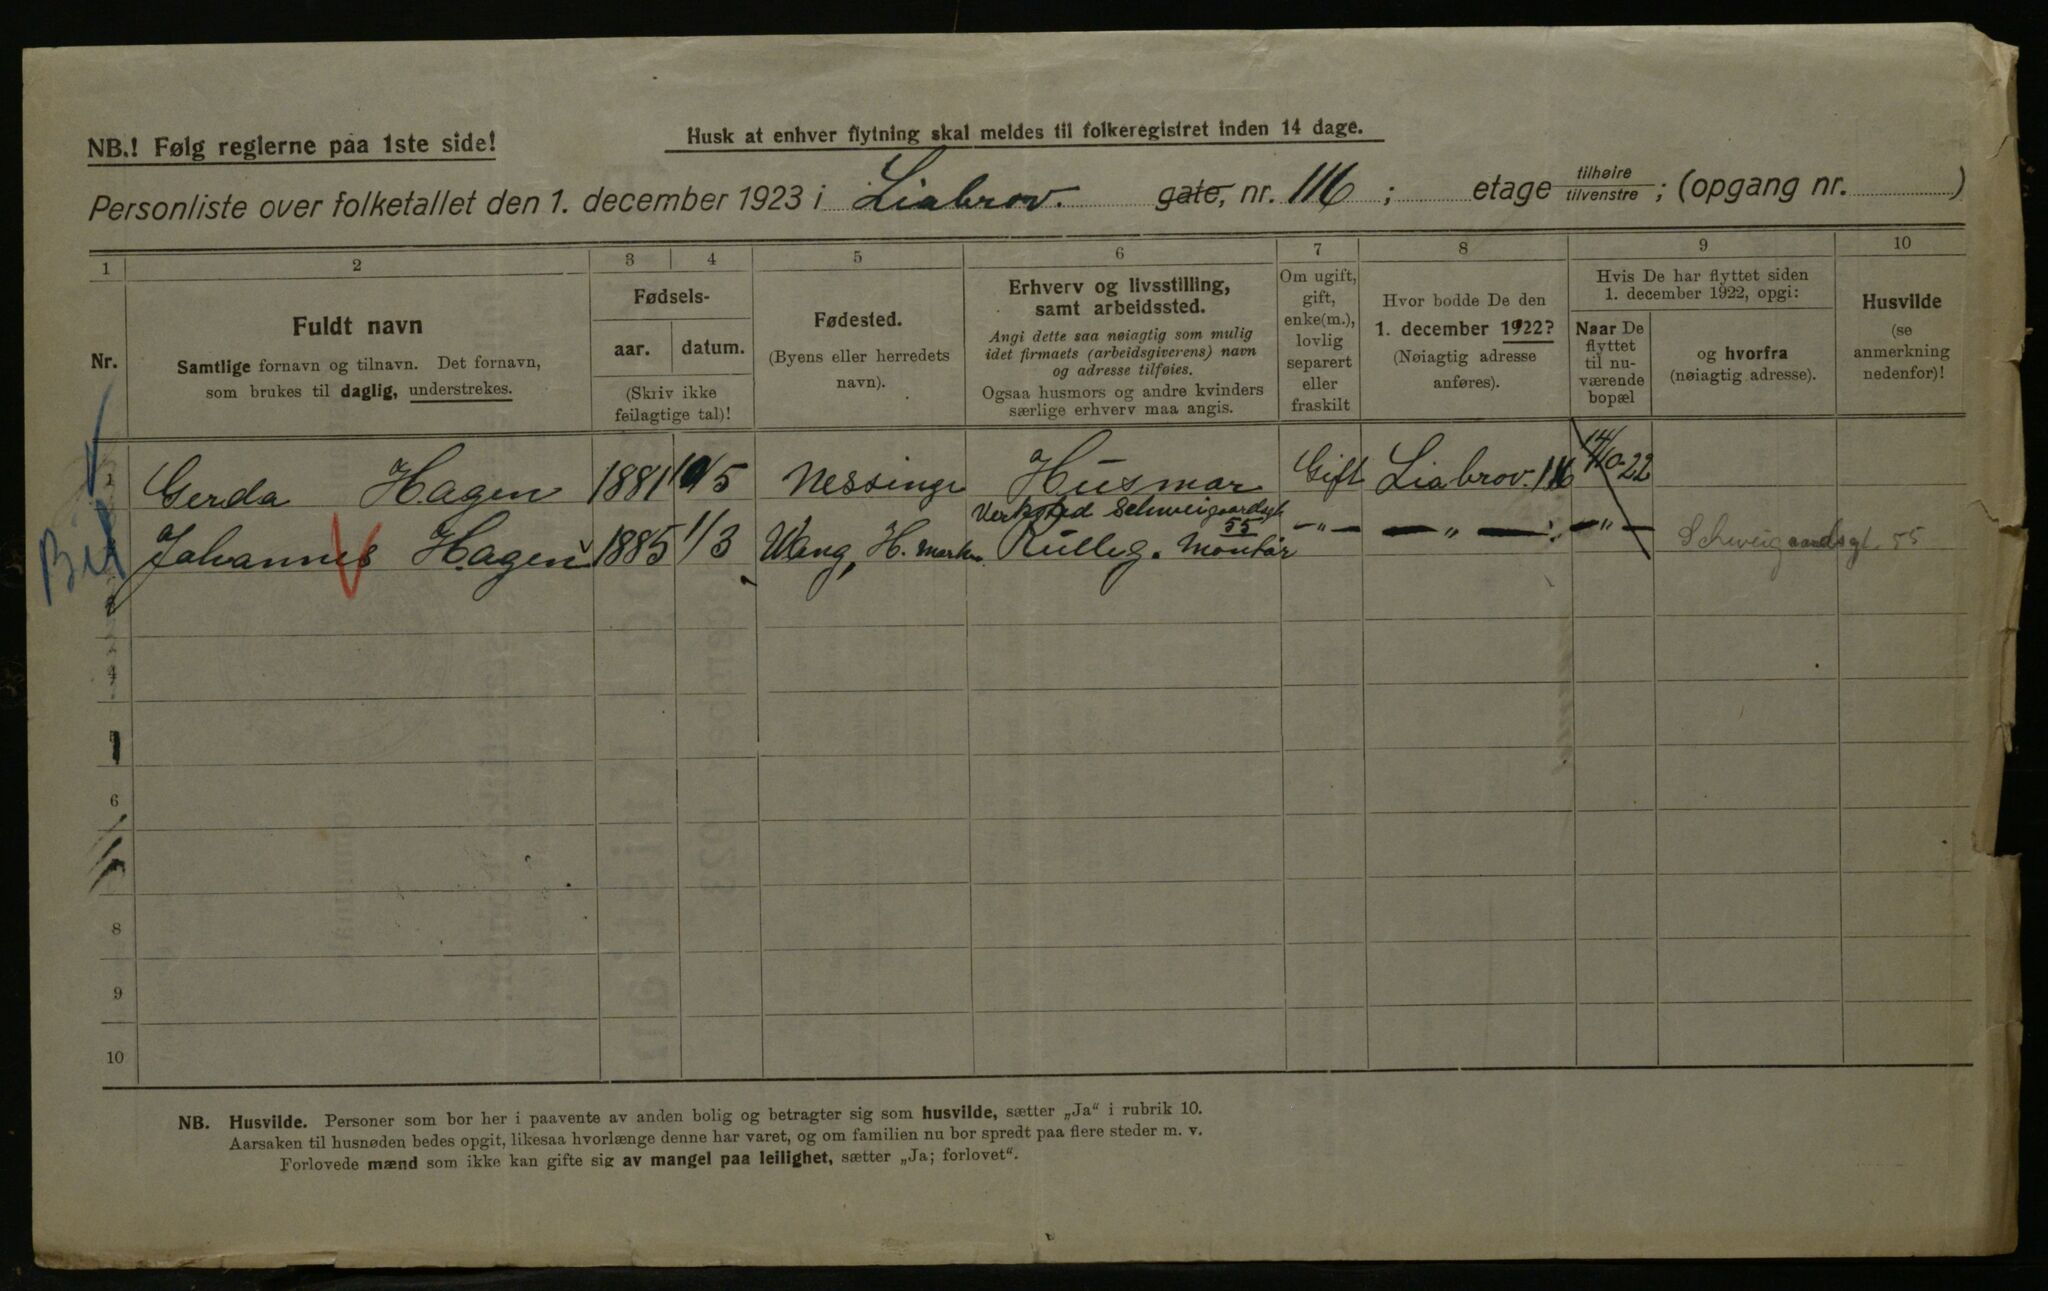 NB.! Følg reglerne paa 1ste side!
Husk at enhver flytning skal meldes til folkeregistret inden 14 dage.
Personliste over folketallet den 1. december 1923 i Liabrov. gate, nr. 116; etage tilhøire tilvenstre; (opgang nr. )
1 2 3 4 5 6 7 8 9 10
Nr.
Fuldt navn
Samtlige fornavn og tilnavn. Det fornavn,
som brukes til daglig, understrekes.
Fødsels-
aar. datum.
(Skriv ikke
feilagtige tal)!
Fødested.
(Byens eller herredets
navn).
Erhverv og livsstilling,
samt arbeidssted.
Angi dette saa nøiagtig som mulig
idet firmaets (arbeidsgiverens) navn
og adresse tilføies.
Ogsaa husmors og andre kvinders
særlige erhverv maa angis.
Om ugift,
gift,
enke(m.),
lovlig
separert
eller
fraskilt
Hvor bodde De den
1. december 1922?
(Nøiagtig adresse
anføres).
Hvis De har flyttet siden
1. december 1922, opgi:
Naar De
flyttet
til nu-
værende
bopæl
og hvorfra
(nøiagtig adresse).
Husvilde
(se
anmerkning
nedenfor)!
Gerda Hagen 1881 Nessinge Husmor Gift Liabrov. 116 14/10-22
Verksted Schweigaardsgt 55
Johannes Hagen 1885 1/3 Wang, H. Rulleg. Montør -„- -„- -„- Schweigaardsgt 55
4
6
8
9
10
NB. Husvilde. Personer som bor her i paavente av anden bolig og betragter sig som husvilde, sætter „Ja“ i rubrik 10.
Aarsaken til husnøden bedes opgit, likesaa hvorlænge denne har varet, og om familien nu bor spredt paa flere steder m. v.
Forlovede mænd som ikke kan gifte sig av mangel paa leilighet, sætter „Ja; forlovet“.